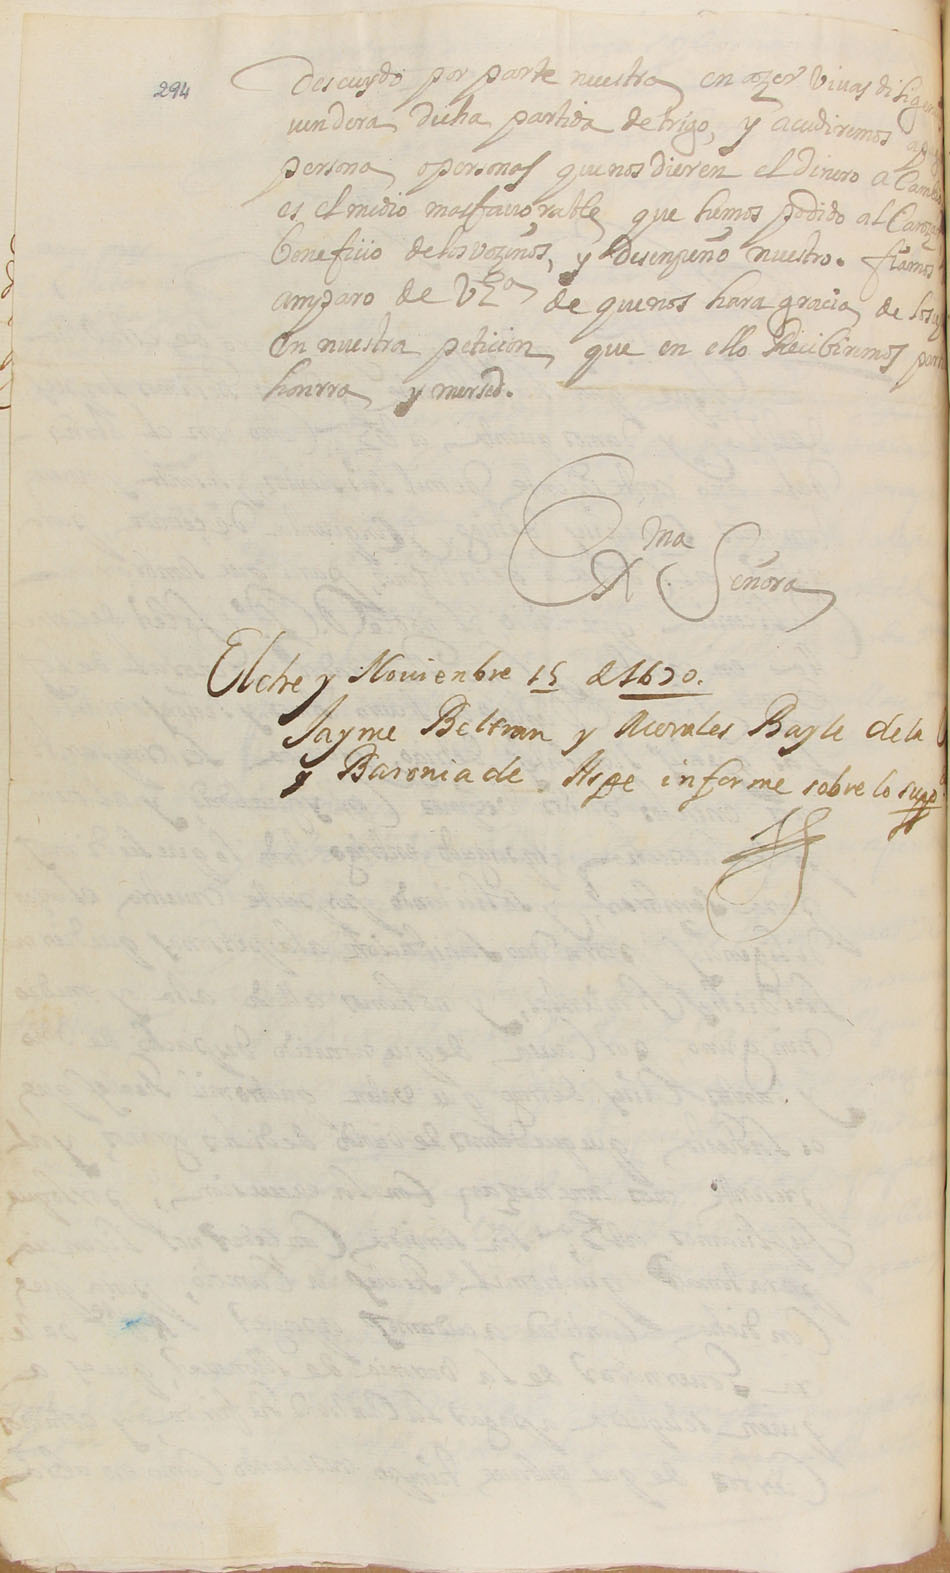 294
descuydo por parte nuestra en azer vivas dilige
vendera dicha partida de trigo, y acudiremos a
persona, o personas que nos dieren el dinero a Cam
es el medio mas favorable que hemos podido al Canza
beneficio de los vezinos, y desenpeño nuestro. fiamos
amparo de VExª de que nos hara gracia de
en nuestra peticion que en ello Recibiremos
honrra y mersed.
Exma Señora
Elche y Novienbre 15 de 1670.
Jayme Beltran y Morales Bayle de la
y Baronia de Aspe informe sobre lo supdo